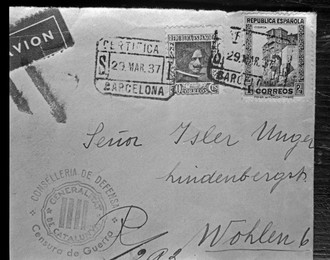 AVION
CERTIFICA
29.MAR.37
BARCELONA
CORREOS
REPUBLICA ESPAÑOLA
29.MAR.37
BARCELONA
CORREOS
Señor Isler Unger
Lindenbergst
Wohlen b
CONSELLERIA DE DEFENSA
GENERALITAT
DE CATALUNYA
Censura de Guerra
R